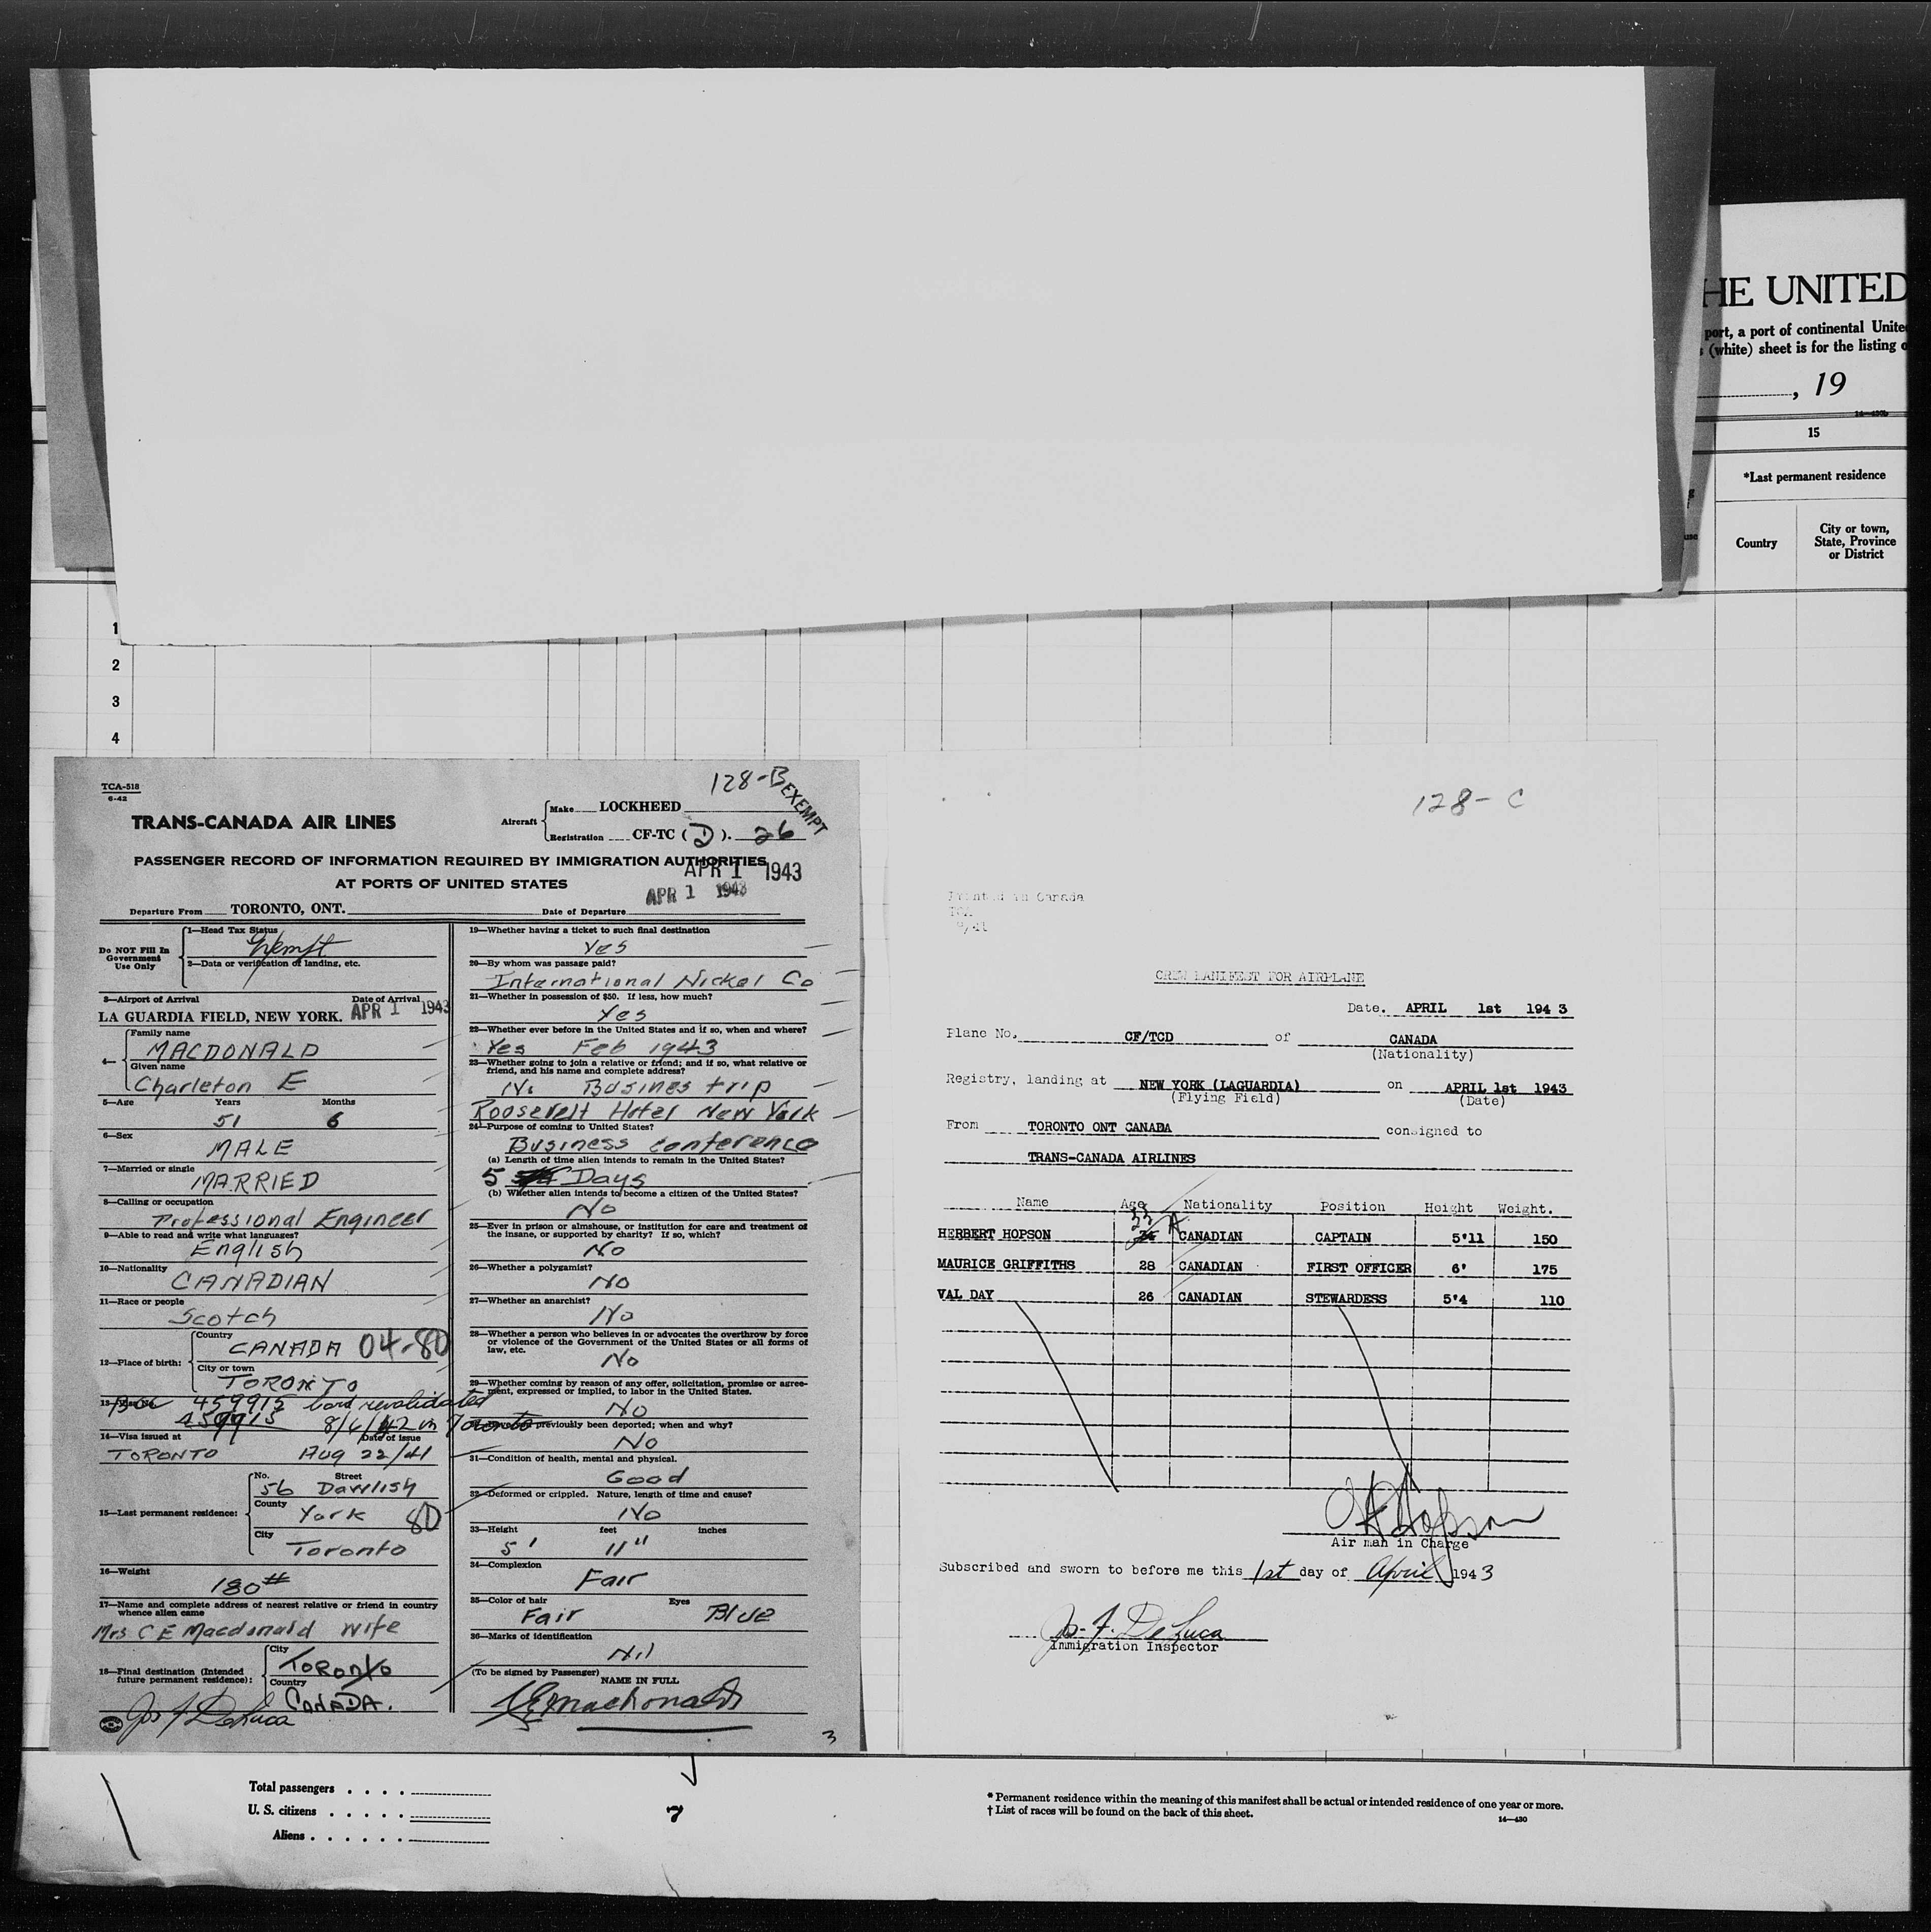 HE UNITED
port, a port of continental Unite
(white) sheet is for the listing o
, 19
15
*Last permanent residence
Country
City or town,
State, Province
or District
1
2
3
4
TCA-518
6-42
128-B
EXEMPT
TRANS-CANADA AIR LINES
Aircraft
Make LOCKHEED
Registration CF-TC (D). 26
PASSENGER RECORD OF INFORMATION REQUIRED BY IMMIGRATION AUTHORITIES
APR 1 1943
AT PORTS OF UNITED STATES
APR 1 1943
Departure From TORONTO, ONT. Date of Departure
Do NOT Fill In
Government
Use Only
1—Head Tax Status
Exempt
2—Data or verification of landing, etc.
3—Airport of Arrival Date of Arrival
LA GUARDIA FIELD, NEW YORK. APR 1 1943
4—
Family name
MACDONALD
Given name
Charleton E
5—Age Years Months
51 6
6—Sex
MALE
7—Married or single
MARRIED
8—Calling or occupation
Professional Engineer
9—Able to read and write what languages?
English
10—Nationality
CANADIAN
11—Race or people
Scotch
12—Place of birth:
Country
CANADA 04-80
City or town
TORONTO
459915 card revalidated
459915 8/6/42 in Toronto
14—Visa issued at Date of issue
TORONTO Aug 22/41
15—Last permanent residence:
No. Street
56 Dawlish
County
York 80
City
Toronto
16—Weight
180#
17—Name and complete address of nearest relative or friend in country
whence alien came
Mrs C E Macdonald Wife
18—Final destination (Intended
future permanent residence):
City
TORONTO
Country
CANADA.
Jos F DeLuca
19—Whether having a ticket to such final destination
Yes
20—By whom was passage paid?
International Nickel Co
21—Whether in possession of $50. If less, how much?
Yes
22—Whether ever before in the United States and if so, when and where?
Yes Feb 1943
23—Whether going to join a relative or friend; and if so, what relative or
friend, and his name and complete address?
No Busines trip
Roosevelt Hotel New York
24—Purpose of coming to United States?
Business conference
(a) Length of time alien intends to remain in the United States?
5 Days
(b) Whether alien intends to become a citizen of the United States?
No
25—Ever in prison or almshouse, or institution for care and treatment of
the insane, or supported by charity? If so, which?
No
26—Whether a polygamist?
No
27—Whether an anarchist?
No
28—Whether a person who believes in or advocates the overthrow by force
or violence of the Government of the United States or all forms of
law, etc.
No
29—Whether coming by reason of any offer, solicitation, promise or agree-
ment, expressed or implied, to labor in the United States.
No
previously been deported; when and why?
No
31—Condition of health, mental and physical.
Good
32—Deformed or crippled. Nature, length of time and cause?
No
33—Height feet inches
5' 11"
34—Complexion
Fair
35—Color of hair Eyes
Fair Blue
36—Marks of identification
Nil
(To be signed by Passenger)
NAME IN FULL
CEMacdonald
3
128-C
Printed in Canada
TCA
CREW MANIFEST FOR AIRPLANE
Date. APRIL 1st 1943
Plane No. CF/TCD of CANADA
(Nationality)
Registry, landing at NEW YORK (LAGUARDIA) on APRIL 1st 1943
(Flying Field) (Date)
From TORONTO ONT CANADA consigned to
TRANS-CANADA AIRLINES
Name Age Nationality Position Height Weight.
HERBERT HOPSON 33 CANADIAN CAPTAIN 5'11 150
MAURICE GRIFFITHS 28 CANADIAN FIRST OFFICER 6' 175
VAL DAY 26 CANADIAN STEWARDESS 5'4 110
Hopson
Air man in Charge
Subscribed and sworn to before me this 1st day of April 1943
Jos. F. DeLuca
Immigration Inspector
Total passengers
U. S. citizens
Aliens
7
* Permanent residence within the meaning of this manifest shall be actual or intended residence of one year or more.
† List of races will be found on the back of this sheet.
14—430